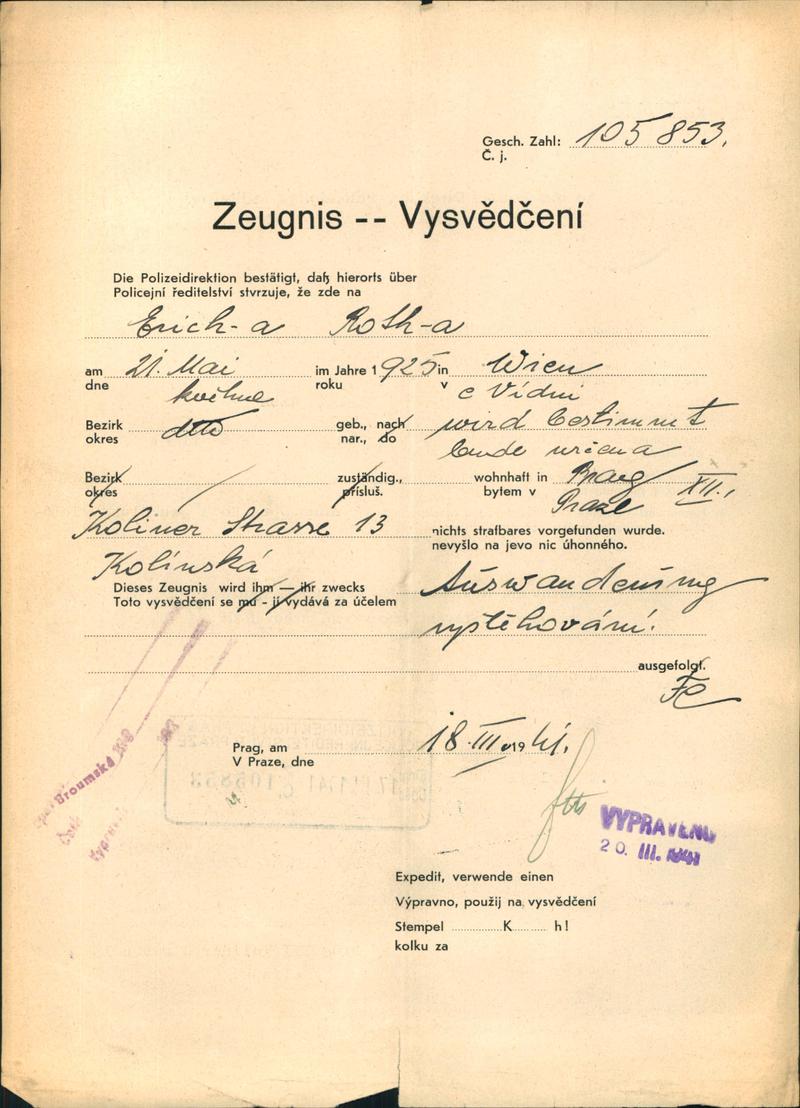 Gesch. Zahl: 105853.
Č. j.
Zeugnis -- Vysvědčení
Die Polizeidirektion bestätigt, daß hierorts über
Policejní ředitelství stvrzuje, že zde na
Erich-a Roth-a
am 21. Mai im Jahre 1925 in Wien
dne května roku v e Vídni
Bezirk detto geb., nach wird bestimmt
okres nar., do bude určena
Bezirk / zuständig., wohnhaft in Prag XII.,
okres přísluš. bytem v Praze
Koliner Strasse 13 nichts strafbares vorgefunden wurde.
Kolínská nevyšlo na jevo nic úhonného.
Dieses Zeugnis wird ihm — ihr zwecks Auswanderung
Toto vysvědčení se mu - jí vydává za účelem
vystěhování.
ausgefolgt.
Prag, am 18. III. 1941.
V Praze, dne
Broumská
VYPRAVENO
20. III. 1941
Expedit, verwende einen
Výpravno, použij na vysvědčení
Stempel K h!
kolku za